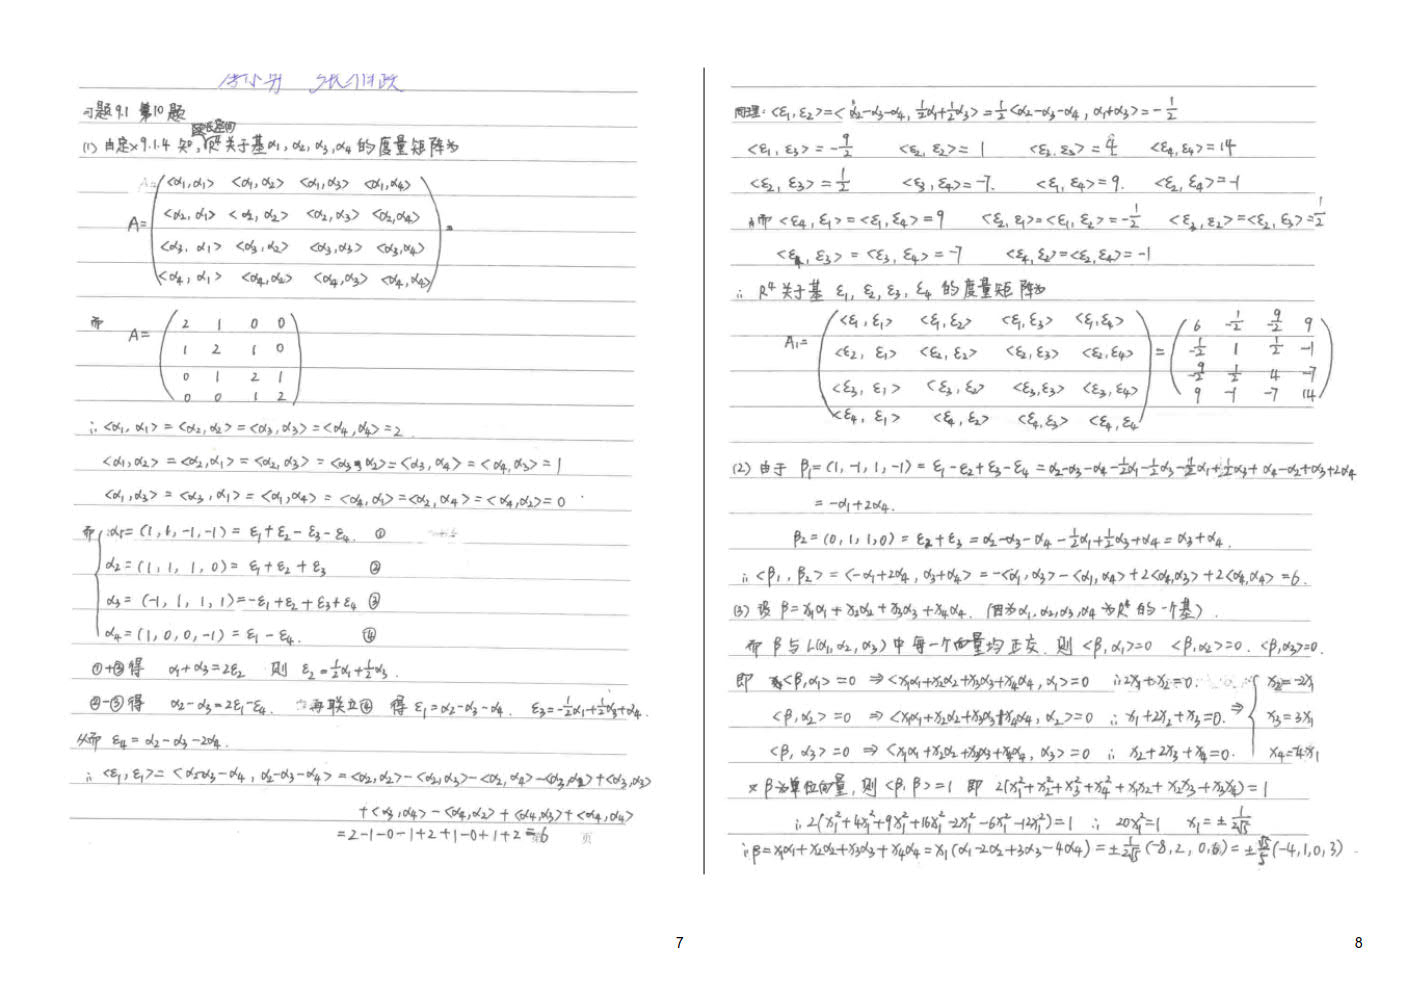 习题9.1 第10题
(1) 由定义9.1.4 知, R⁴关于基α₁, α₂, α₃, α₄ 的度量矩阵为
A= (<α₁,α₁> <α₁,α₂> <α₁,α₃> <α₁,α₄>
<α₂,α₁> <α₂,α₂> <α₂,α₃> <α₂,α₄>
<α₃,α₁> <α₃,α₂> <α₃,α₃> <α₃,α₄>
<α₄,α₁> <α₄,α₂> <α₄,α₃> <α₄,α₄>)
而 A= (2 1 0 0
1 2 1 0
0 1 2 1
0 0 1 2)
∴ <α₁,α₁> = <α₂,α₂> = <α₃,α₃> = <α₄,α₄> = 2
<α₁,α₂> = <α₂,α₁> = <α₂,α₃> = <α₃,α₂> = <α₃,α₄> = <α₄,α₃> = 1
<α₁,α₃> = <α₃,α₁> = <α₁,α₄> = <α₄,α₁> = <α₂,α₄> = <α₄,α₂> = 0
而 { α₁= (1, 1, -1, -1) = ε₁+ε₂-ε₃-ε₄ ①
α₂= (1, 1, 1, 0) = ε₁+ε₂+ε₃ ②
α₃= (-1, 1, 1, 1) = -ε₁+ε₂+ε₃+ε₄ ③
α₄= (1, 0, 0, -1) = ε₁-ε₄. ④
①+③得 α₁+α₃=2ε₂ 则 ε₂=½α₁+½α₃.
②-③得 α₂-α₃=2ε₁-ε₄. 再联立④ 得 ε₁=α₂-α₃-α₄. ε₃=-½α₁+½α₃+α₄.
从而 ε₄=α₂-α₃-2α₄.
∴ <ε₁,ε₁>= <α₂-α₃-α₄, α₂-α₃-α₄> = <α₂,α₂>-<α₂,α₃>-<α₂,α₄>-<α₃,α₂>+<α₃,α₃>
+<α₃,α₄>-<α₄,α₂>+<α₄,α₃>+<α₄,α₄>
=2-1-0-1+2+1-0+1+2=6
页
同理: <ε₁,ε₂>=<α₂-α₃-α₄, ½α₁+½α₃>=½<α₂-α₃-α₄, α₁+α₃>=-½
<ε₁,ε₃>=-9/2 <ε₂,ε₂>=1 <ε₃,ε₃>=4 <ε₄,ε₄>=14
<ε₂,ε₃>=½ <ε₃,ε₄>=-7. <ε₁,ε₄>=9. <ε₂,ε₄>=-1
从而 <ε₄,ε₁>=<ε₁,ε₄>=9 <ε₂,ε₁>=<ε₁,ε₂>=-½ <ε₃,ε₂>=<ε₂,ε₃>=½
<ε₄,ε₃>=<ε₃,ε₄>=-7 <ε₄,ε₂>=<ε₂,ε₄>=-1
∴ R⁴关于基 ε₁, ε₂, ε₃, ε₄ 的度量矩阵为
A₁= (<ε₁,ε₁> <ε₁,ε₂> <ε₁,ε₃> <ε₁,ε₄> = (6 -½ -9/2 9
<ε₂,ε₁> <ε₂,ε₂> <ε₂,ε₃> <ε₂,ε₄> -½ 1 ½ -1
<ε₃,ε₁> <ε₃,ε₂> <ε₃,ε₃> <ε₃,ε₄> -9/2 ½ 4 -7
<ε₄,ε₁> <ε₄,ε₂> <ε₄,ε₃> <ε₄,ε₄) 9 -1 -7 14)
(2) 由于 β₁=(1,-1,1,-1)=ε₁-ε₂+ε₃-ε₄=α₂-α₃-α₄-½α₁-½α₃-½α₁+½α₃+α₄-α₂+α₃+2α₄
=-α₁+2α₄.
β₂=(0,1,1,0)=ε₂+ε₃=α₂-α₃-α₄-½α₁+½α₃+α₄=α₃+α₄.
∴ <β₁,β₂>=<-α₁+2α₄, α₃+α₄>=-<α₁,α₃>-<α₁,α₄>+2<α₄,α₃>+2<α₄,α₄>=6.
(3) 设 β=x₁α₁+x₂α₂+x₃α₃+x₄α₄. (因为α₁,α₂,α₃,α₄为R⁴的一个基).
而 β与L(α₁,α₂,α₃)中每一个向量均正交. 则 <β,α₁>=0 <β,α₂>=0. <β,α₃>=0.
即 <β,α₁>=0 ⇒ <x₁α₁+x₂α₂+x₃α₃+x₄α₄, α₁>=0 ∴2x₁+x₂=0. { x₂=-2x₁
<β,α₂>=0 ⇒ <x₁α₁+x₂α₂+x₃α₃+x₄α₄, α₂>=0 ∴ x₁+2x₂+x₃=0. ⇒ x₃=3x₁
<β,α₃>=0 ⇒ <x₁α₁+x₂α₂+x₃α₃+x₄α₄, α₃>=0 ∴ x₂+2x₃+x₄=0. x₄=-4x₁
又β为单位向量, 则 <β,β>=1 即 2(x₁²+x₂²+x₃²+x₄²+x₁x₂+x₂x₃+x₃x₄)=1
∴ 2(x₁²+4x₁²+9x₁²+16x₁²-2x₁²-6x₁²-12x₁²)=1 ∴ 20x₁²=1 x₁=±1/(2√5)
∴ β=x₁α₁+x₂α₂+x₃α₃+x₄α₄=x₁(α₁-2α₂+3α₃-4α₄)=±1/(2√5)(-8,2,0,6)=±√5/5(-4,1,0,3)
7
8